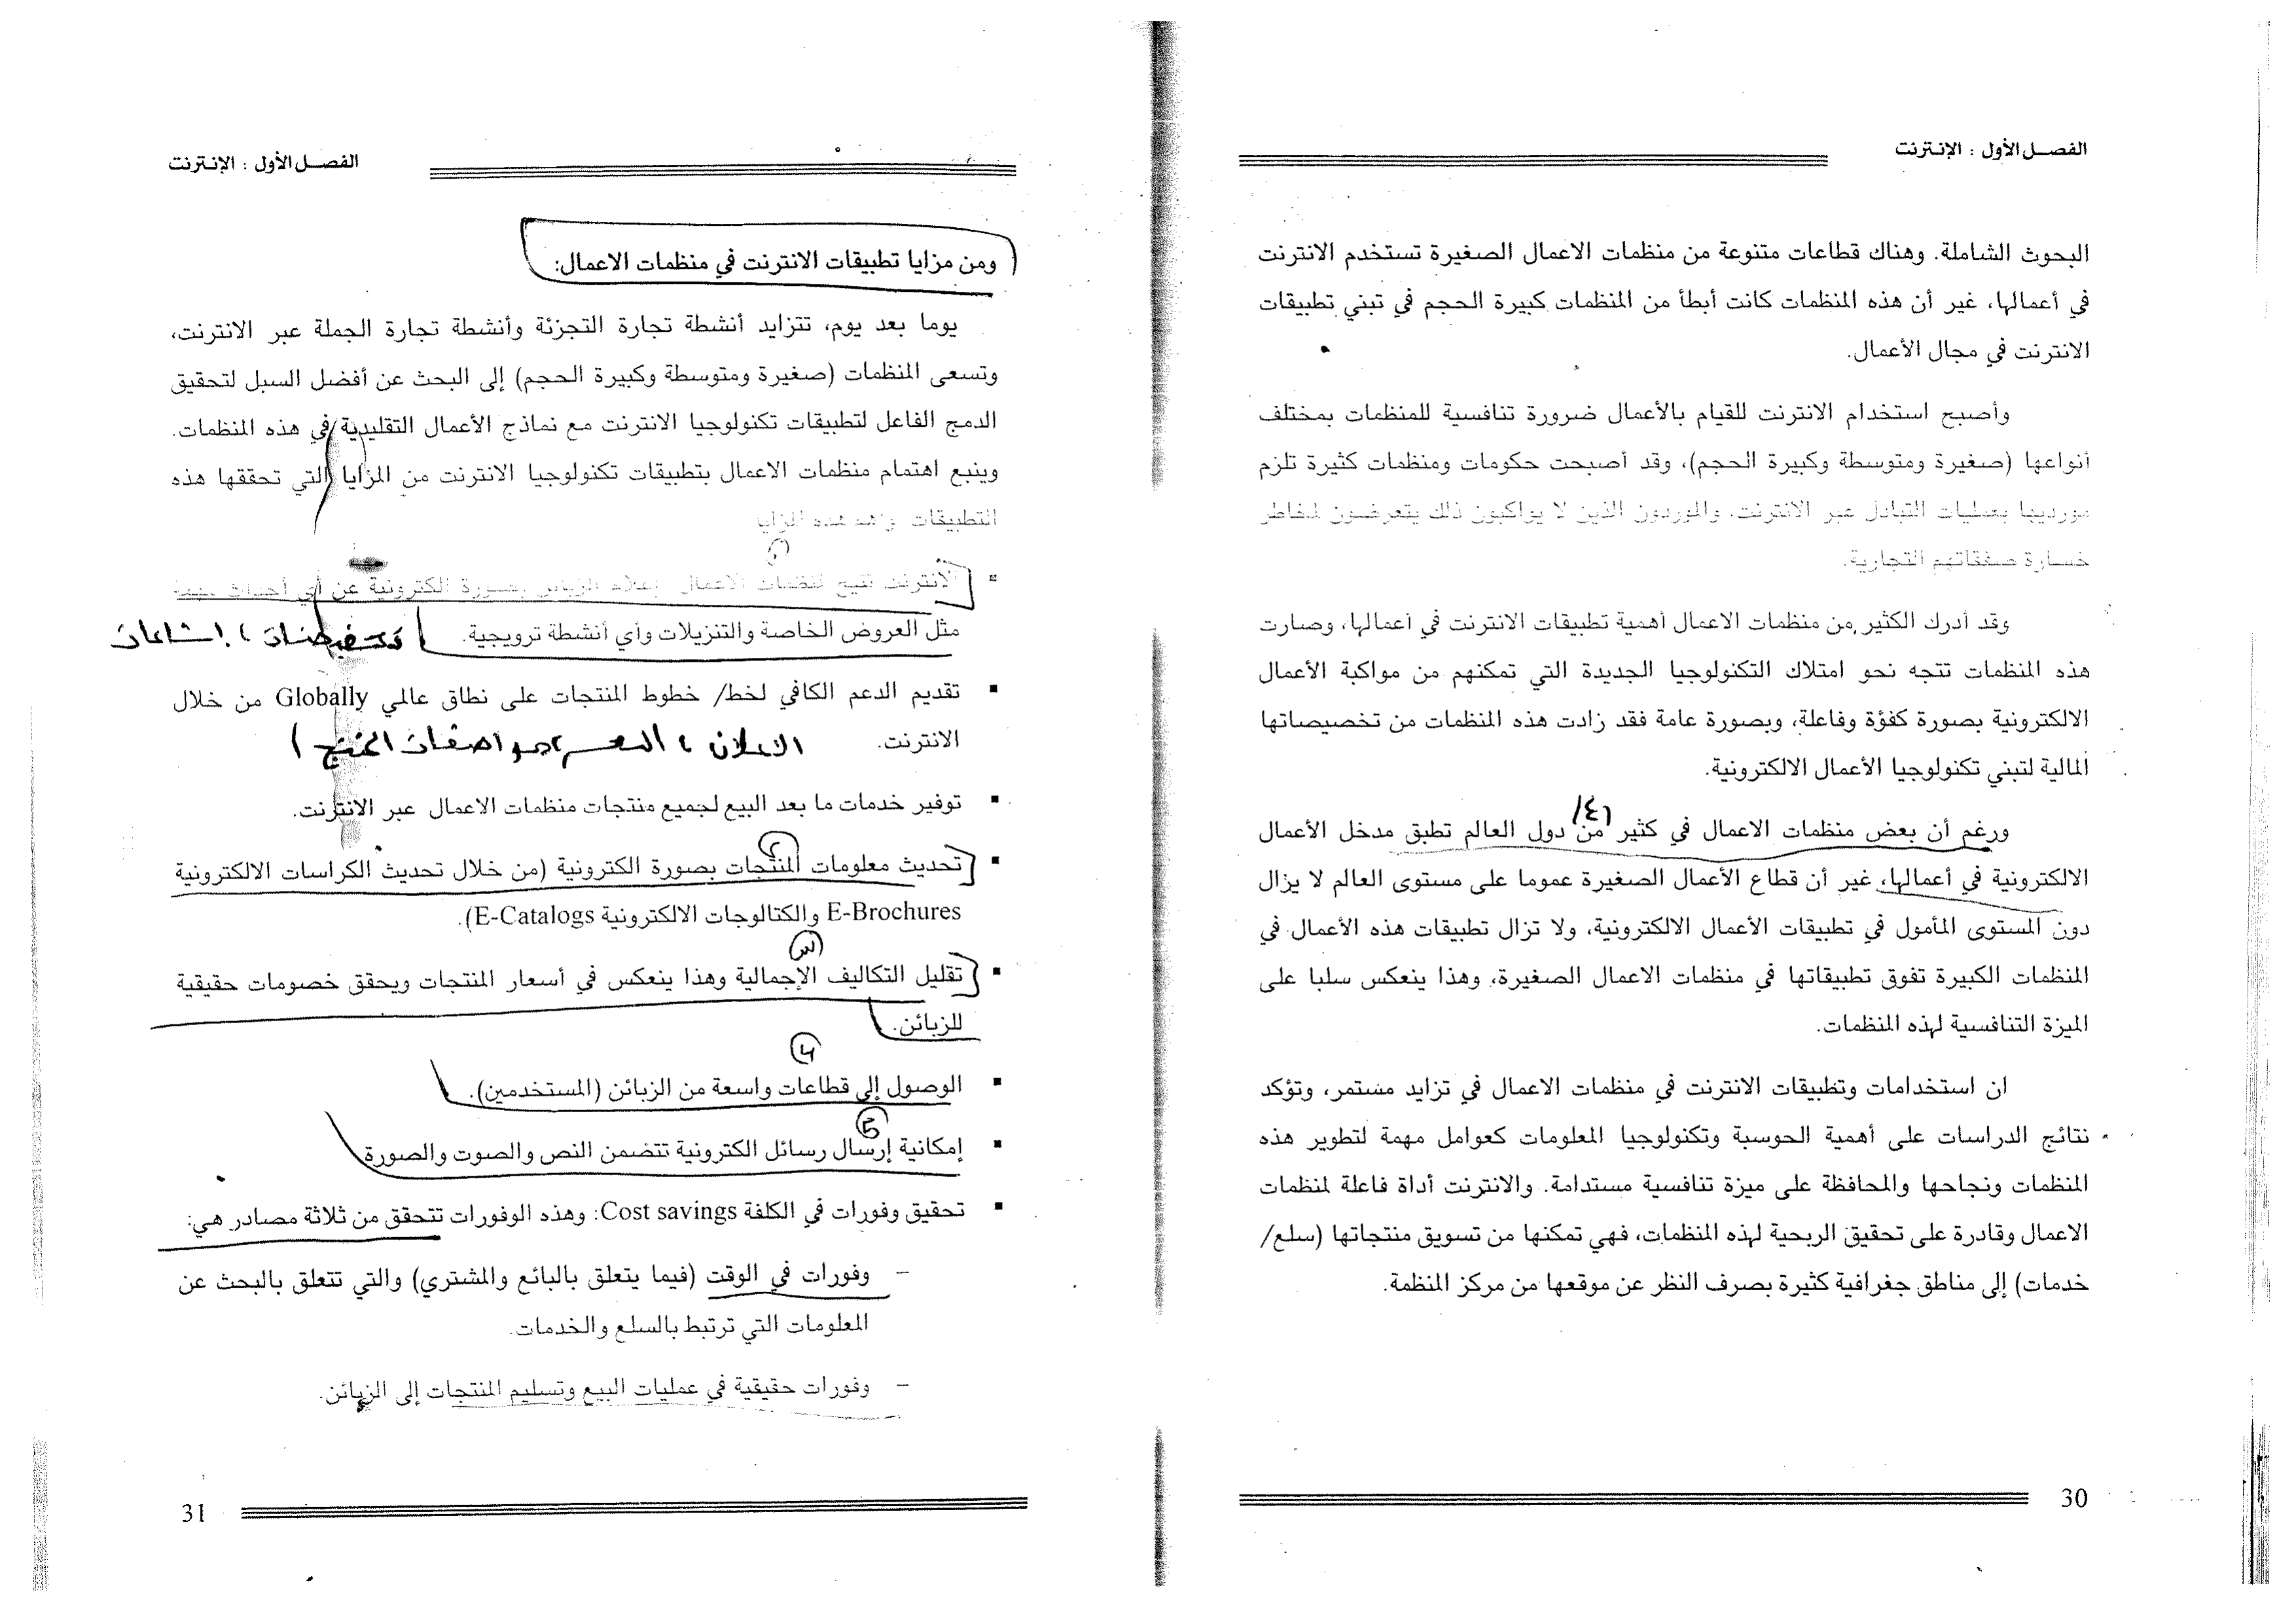 الفصل الأول : الإنترنت
البحوث الشاملة. وهناك قطاعات متنوعة من منظمات الاعمال الصغيرة تستخدم الانترنت
في أعمالها، غير أن هذه المنظمات كانت أبطأ من المنظمات كبيرة الحجم في تبني تطبيقات
الانترنت في مجال الأعمال.
وأصبح استخدام الانترنت للقيام بالأعمال ضرورة تنافسية للمنظمات بمختلف
أنواعها (صغيرة ومتوسطة وكبيرة الحجم)، وقد أصبحت حكومات ومنظمات كثيرة تلزم
مورديها بعمليات التبادل عبر الانترنت، والموردون الذين لا يواكبون ذلك يتعرضون لمخاطر
خسارة صفقاتهم التجارية.
وقد أدرك الكثير من منظمات الاعمال أهمية تطبيقات الانترنت في أعمالها، وصارت
هذه المنظمات تتجه نحو امتلاك التكنولوجيا الجديدة التي تمكنهم من مواكبة الأعمال
الالكترونية بصورة كفؤة وفاعلة، وبصورة عامة فقد زادت هذه المنظمات من تخصيصاتها
المالية لتبني تكنولوجيا الأعمال الالكترونية.
ورغم أن بعض منظمات الاعمال في كثير من دول العالم تطبق مدخل الأعمال
الالكترونية في أعمالها، غير أن قطاع الأعمال الصغيرة عموما على مستوى العالم لا يزال
دون المستوى المأمول في تطبيقات الأعمال الالكترونية، ولا تزال تطبيقات هذه الأعمال في
المنظمات الكبيرة تفوق تطبيقاتها في منظمات الاعمال الصغيرة، وهذا ينعكس سلبا على
الميزة التنافسية لهذه المنظمات.
ان استخدامات وتطبيقات الانترنت في منظمات الاعمال في تزايد مستمر، وتؤكد
نتائج الدراسات على أهمية الحوسبة وتكنولوجيا المعلومات كعوامل مهمة لتطوير هذه
المنظمات ونجاحها والمحافظة على ميزة تنافسية مستدامة. والانترنت أداة فاعلة لمنظمات
الاعمال وقادرة على تحقيق الربحية لهذه المنظمات، فهي تمكنها من تسويق منتجاتها (سلع/
خدمات) إلى مناطق جغرافية كثيرة بصرف النظر عن موقعها من مركز المنظمة.
30
الفصل الأول : الإنترنت
ومن مزايا تطبيقات الانترنت في منظمات الاعمال:
يوما بعد يوم، تتزايد أنشطة تجارة التجزئة وأنشطة تجارة الجملة عبر الانترنت،
وتسعى المنظمات (صغيرة ومتوسطة وكبيرة الحجم) إلى البحث عن أفضل السبل لتحقيق
الدمج الفاعل لتطبيقات تكنولوجيا الانترنت مع نماذج الأعمال التقليدية في هذه المنظمات.
وينبع اهتمام منظمات الاعمال بتطبيقات تكنولوجيا الانترنت من المزايا التي تحققها هذه
التطبيقات وأهم هذه المزايا
▪ الانترنت تتيح لمنظمات الاعمال إعلام الزبائن بصورة الكترونية عن أي أحداث
مثل العروض الخاصة والتنزيلات وأي أنشطة ترويجية.
▪ تقديم الدعم الكافي لخط/ خطوط المنتجات على نطاق عالمي Globally من خلال
الانترنت. الاعلان ، السعر، مواصفات المنتج)
▪ توفير خدمات ما بعد البيع لجميع منتجات منظمات الاعمال عبر الانترنت.
▪ تحديث معلومات المنتجات بصورة الكترونية (من خلال تحديث الكراسات الالكترونية
E-Brochures والكتالوجات الالكترونية E-Catalogs).
▪ تقليل التكاليف الإجمالية وهذا ينعكس في أسعار المنتجات ويحقق خصومات حقيقية
للزبائن.
▪ الوصول إلى قطاعات واسعة من الزبائن (المستخدمين).
▪ إمكانية إرسال رسائل الكترونية تتضمن النص والصوت والصورة
▪ تحقيق وفورات في الكلفة Cost savings: وهذه الوفورات تتحقق من ثلاثة مصادر هي:
– وفورات في الوقت (فيما يتعلق بالبائع والمشتري) والتي تتعلق بالبحث عن
المعلومات التي ترتبط بالسلع والخدمات.
– وفورات حقيقية في عمليات البيع وتسليم المنتجات إلى الزبائن.
31